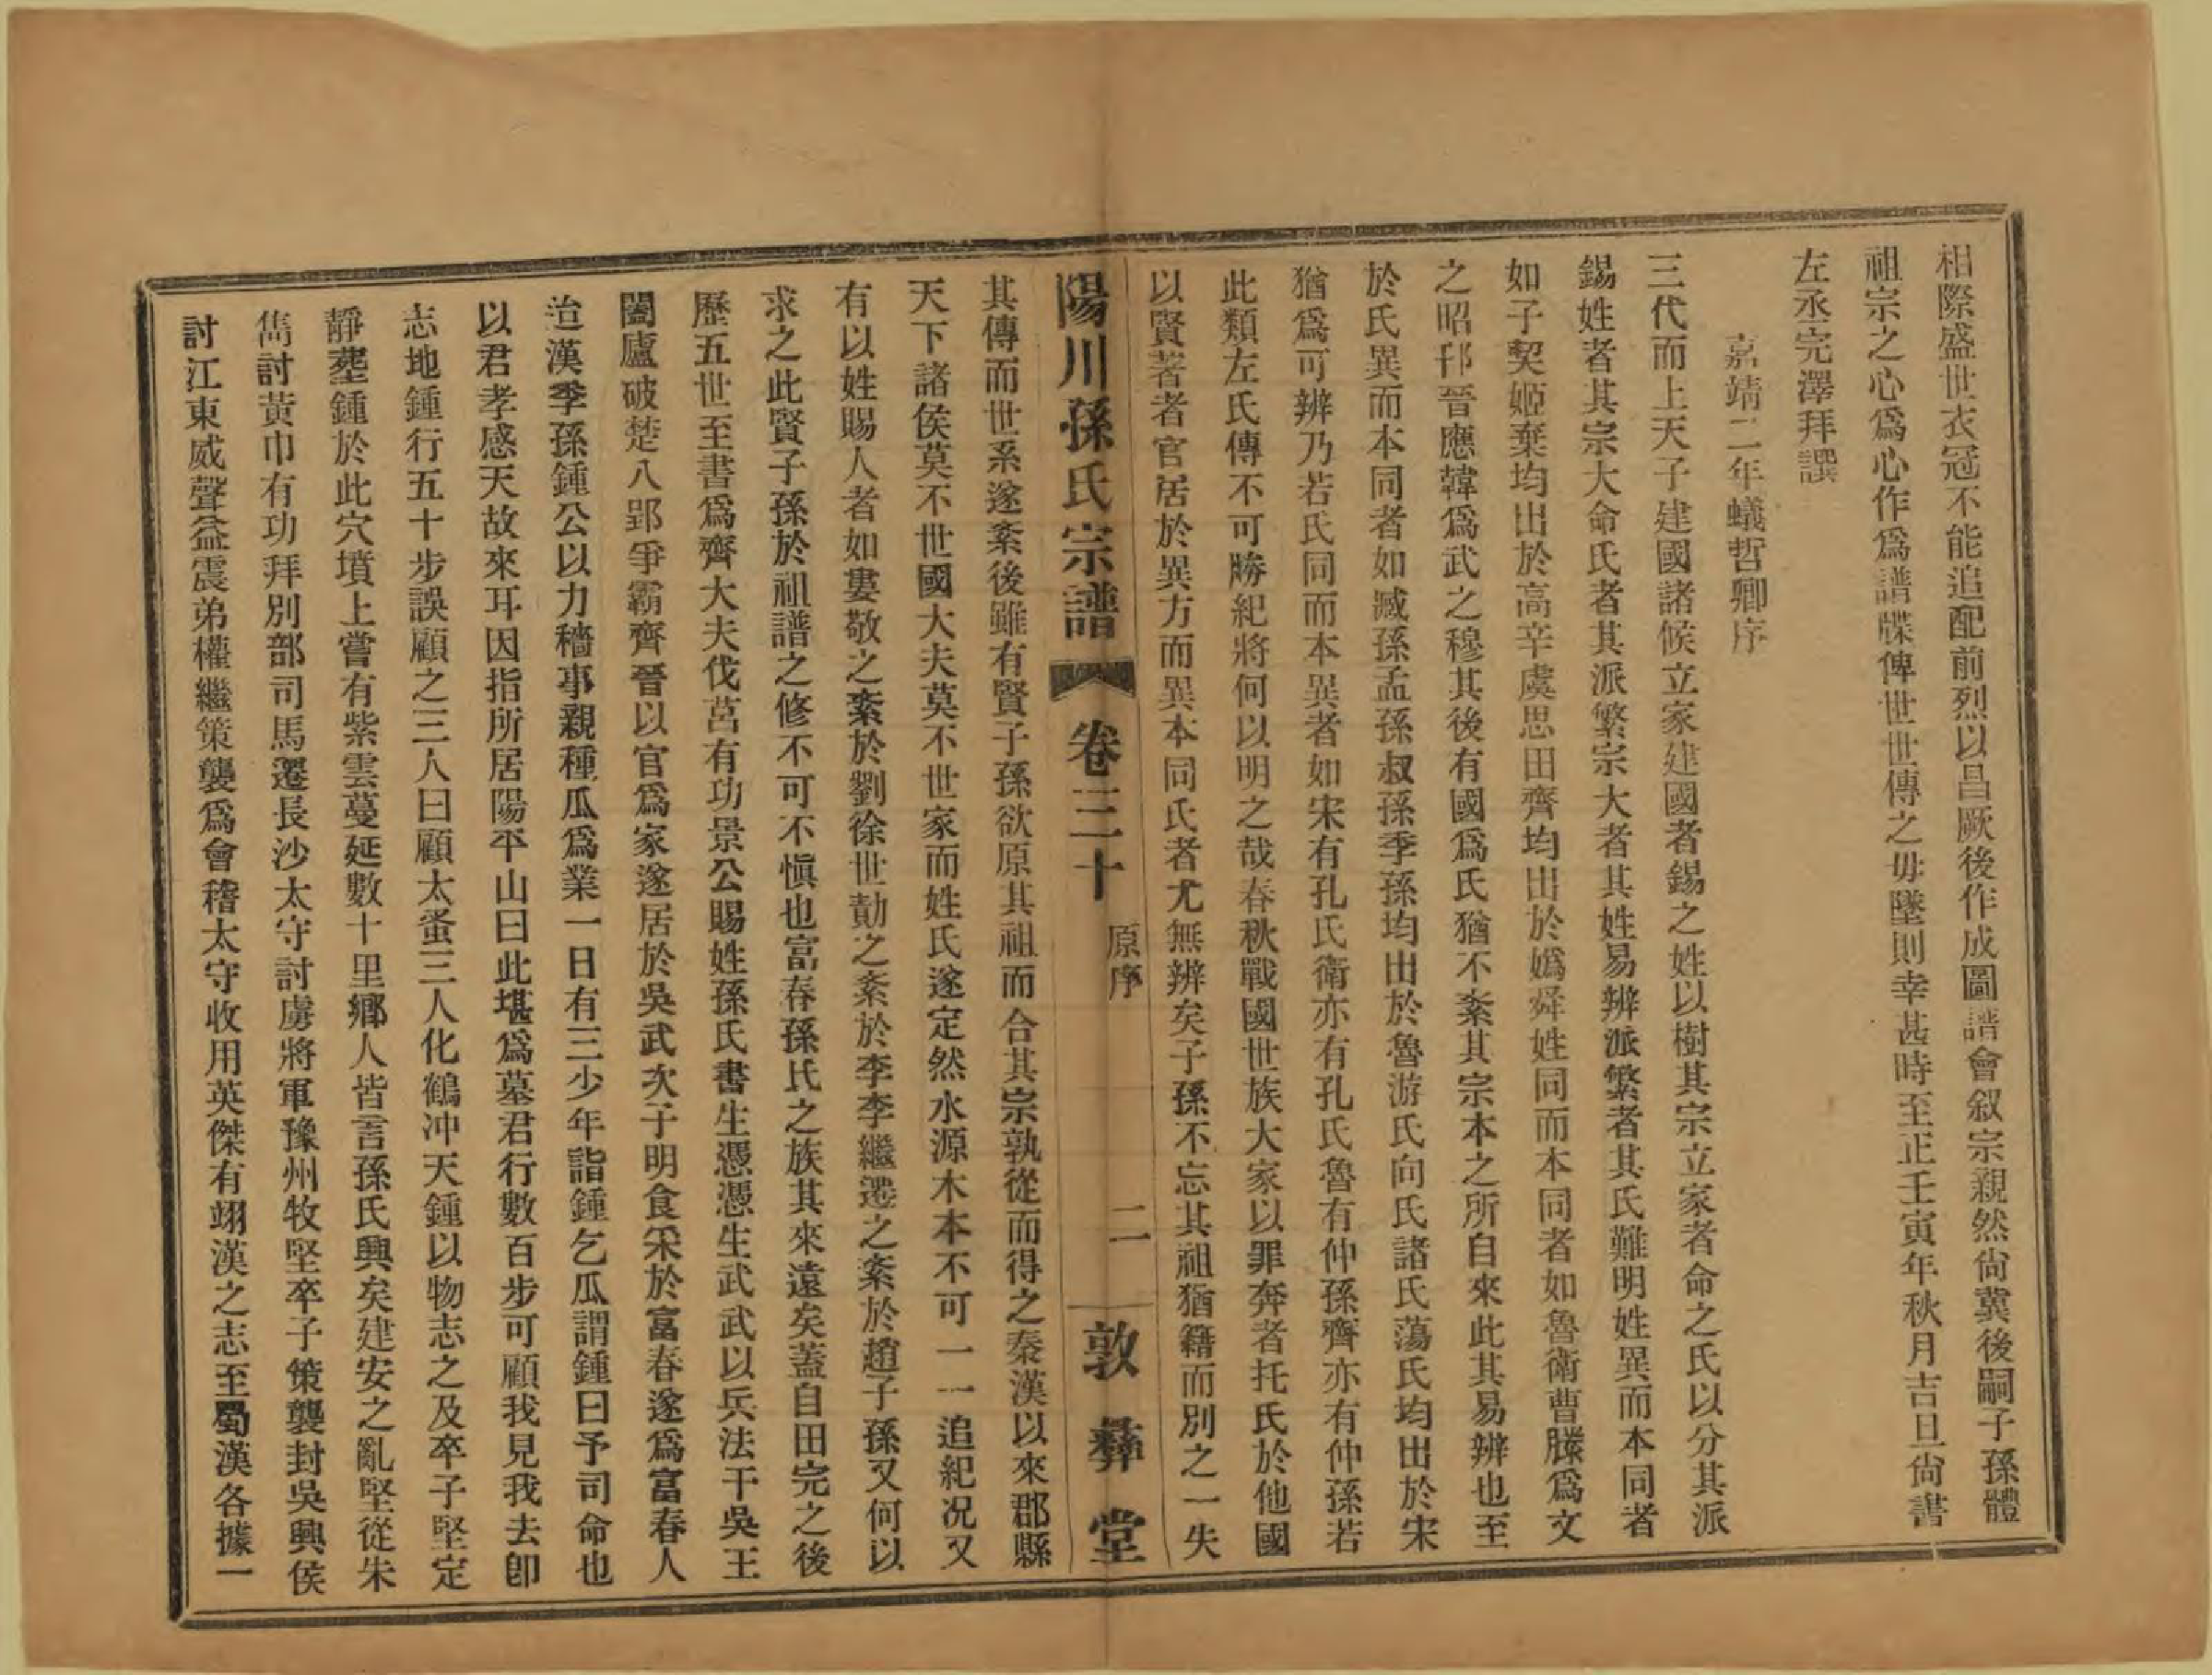 相際盛世衣冠不能追配前烈以昌厥後作成圖譜會叙宗親然尙冀後嗣子孫體
祖宗之心爲心作爲譜牒俾世世傳之毋墜則幸甚時至正壬寅年秋月吉旦尙書
左丞完澤拜譔
嘉靖二年蟻哲卿序
三代而上天子建國諸候立家建國者錫之姓以樹其宗立家者命之氏以分其派
錫姓者其宗大命氏者其派繁宗大者其姓易辨派繁者其氏難明姓異而本同者
如子契姬棄均出於高辛虞思田齊均出於嬀舜姓同而本同者如魯衛曹滕爲文
之昭邘晉應韓爲武之穆其後有國爲氏猶不紊其宗本之所自來此其易辨也至
於氏異而本同者如臧孫孟孫叔孫季孫均出於魯游氏向氏諸氏蕩氏均出於宋
猶爲可辨乃若氏同而本異者如宋有孔氏衛亦有孔氏魯有仲孫齊亦有仲孫若
此類左氏傳不可勝紀將何以明之哉春秋戰國世族大家以罪奔者托氏於他國
以賢著者官居於異方而異本同氏者尤無辨矣子孫不忘其祖猶籍而別之一失
陽川孫氏宗譜 卷三十 原序 二 敦彝堂
其傳而世系遂紊後雖有賢子孫欲原其祖而合其宗孰從而得之秦漢以來郡縣
天下諸侯莫不世國大夫莫不世家而姓氏遂定然水源木本不可一一追紀况又
有以姓賜人者如婁敬之紊於劉徐世勣之紊於李李繼遷之紊於趙子孫又何以
求之此賢子孫於祖譜之修不可不愼也富春孫氏之族其來遠矣蓋自田完之後
歷五世至書爲齊大夫伐莒有功景公賜姓孫氏書生憑憑生武武以兵法干吳王
闔廬破楚入郢爭霸齊晉以官爲家遂居於吳武次子明食采於富春遂爲富春人
迨漢季孫鍾公以力穡事親種瓜爲業一日有三少年詣鍾乞瓜謂鍾曰予司命也
以君孝感天故來耳因指所居陽平山曰此堪爲墓君行數百步可顧我見我去卽
志地鍾行五十步誤顧之三人曰顧太蚤三人化鶴冲天鍾以物志之及卒子堅定
靜塟鍾於此穴墳上嘗有紫雲蔓延數十里鄉人皆言孫氏興矣建安之亂堅從朱
儁討黃巾有功拜別部司馬遷長沙太守討虜將軍豫州牧堅卒子策襲封吳興侯
討江東威聲益震弟權繼策襲爲會稽太守收用英傑有翊漢之志至蜀漢各據一